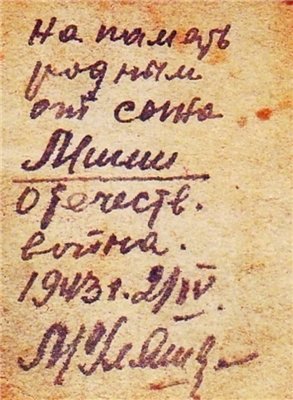 На память
родным
от сына
Миши
Отечеств.
война.
1943 г. 2/IV.